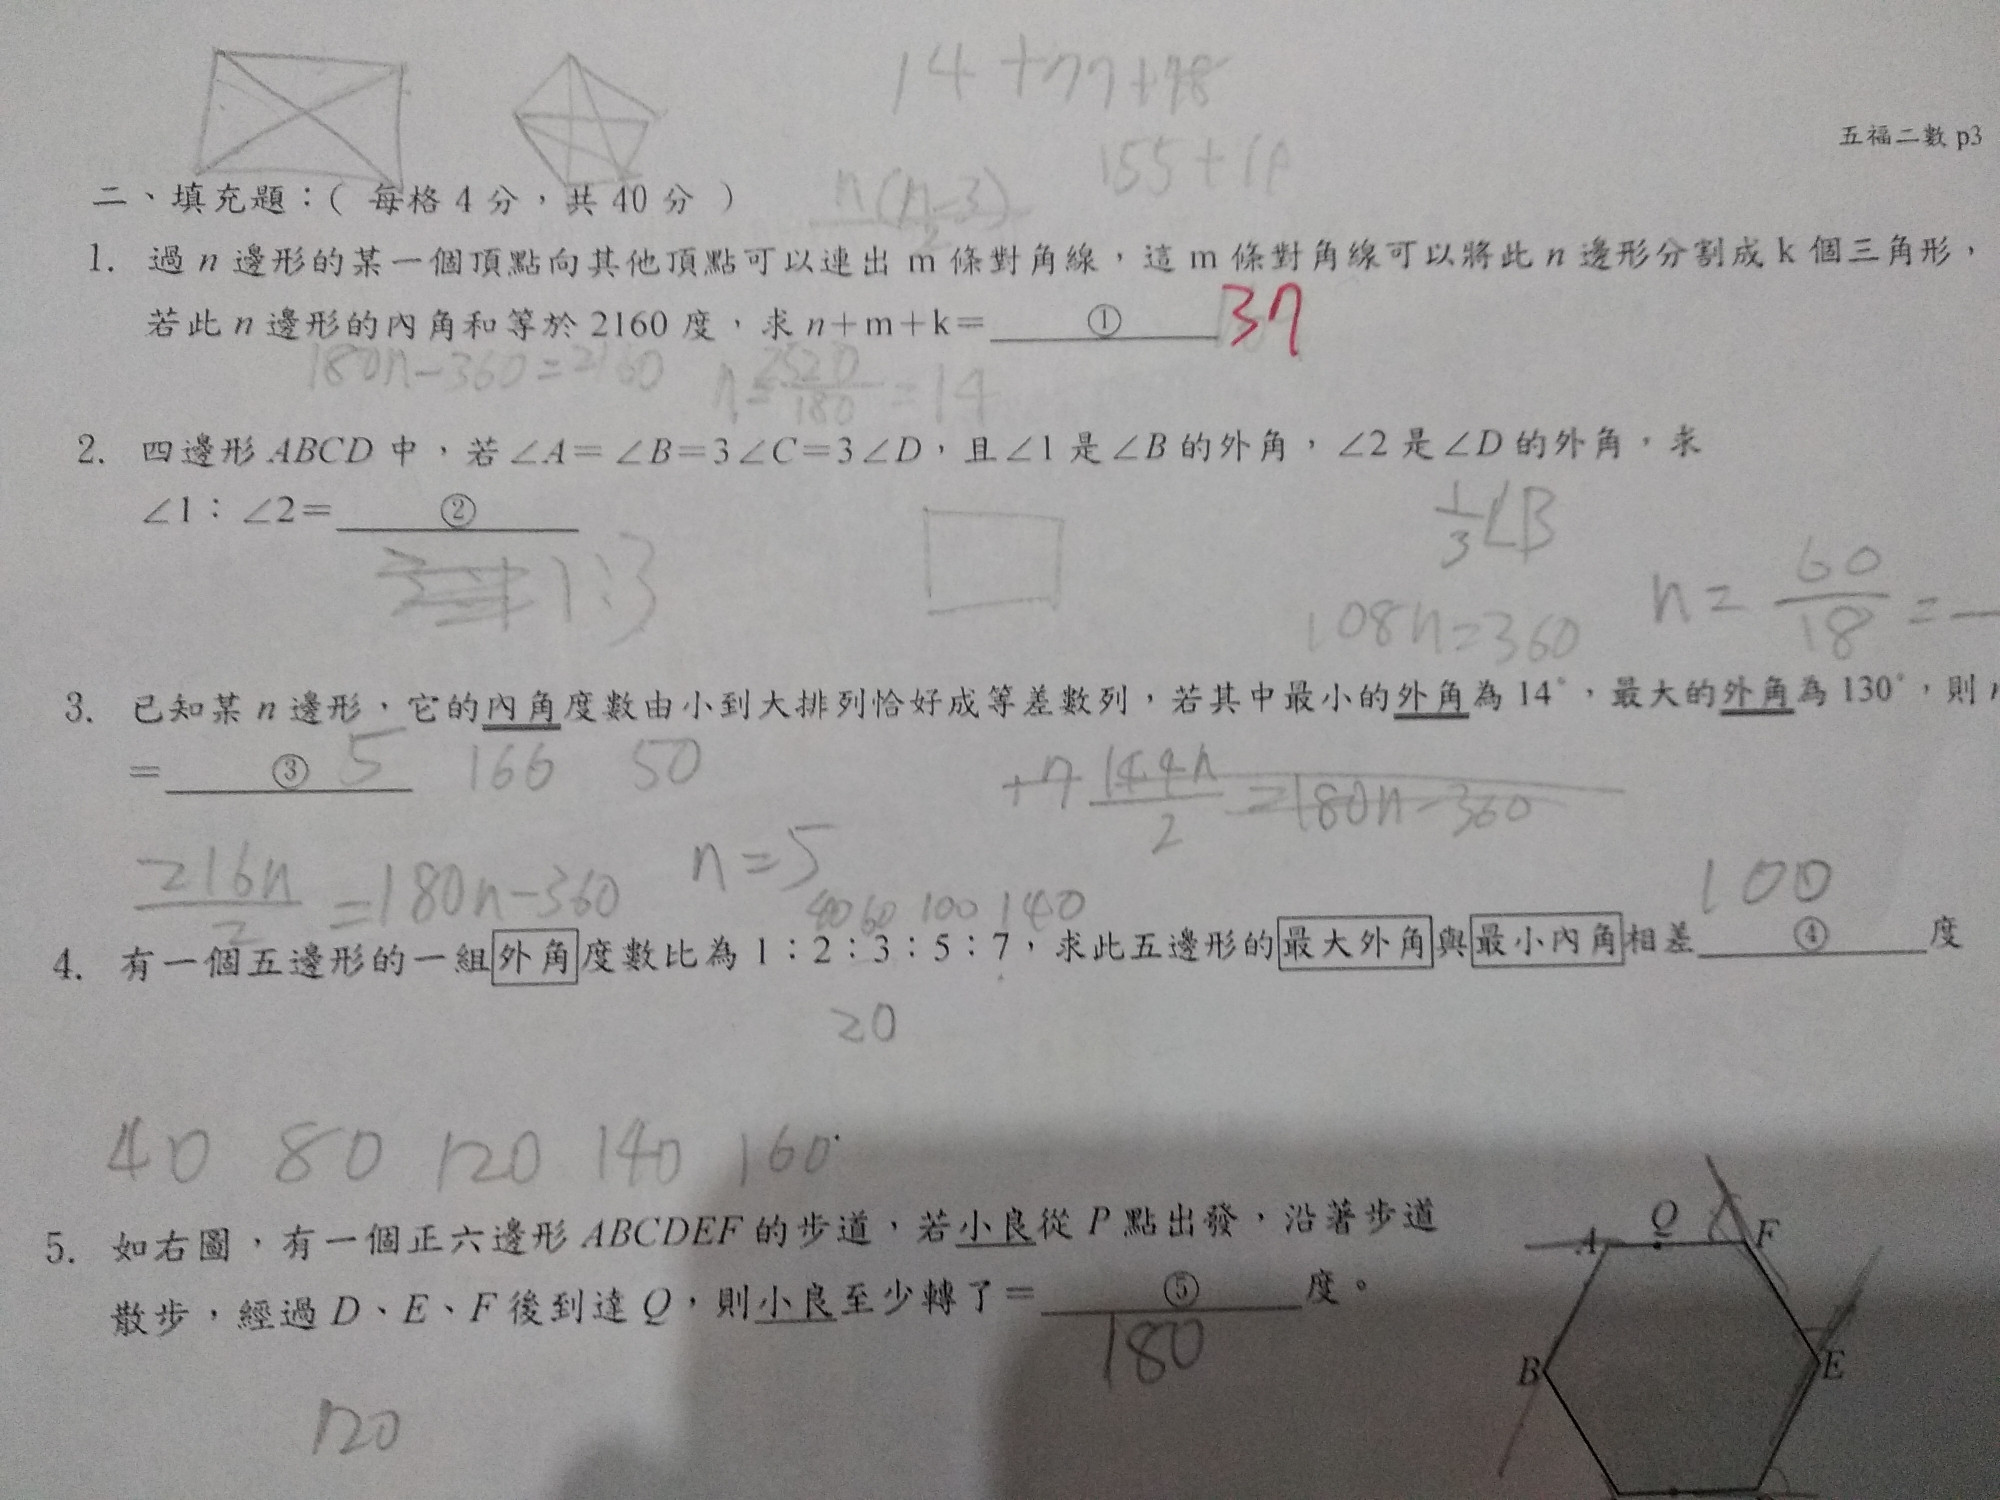 14+77+78
五福二數 p3
155+19
n(n-3)
2
二、填充題：( 每格 4 分，共 40 分 )
1. 過 n 邊形的某一個頂點向其他頂點可以連出 m 條對角線，這 m 條對角線可以將此 n 邊形分割成 k 個三角形，
若此 n 邊形的內角和等於 2160 度，求 n+m+k= ① 37
180n-360=2160 n=2520/180=14
2. 四邊形 ABCD 中，若∠A=∠B=3∠C=3∠D，且∠1 是∠B 的外角，∠2 是∠D 的外角，求
∠1：∠2= ②
1:3
1/3∠B
108n=360 n=60/18=
3. 已知某 n 邊形，它的內角度數由小到大排列恰好成等差數列，若其中最小的外角為 14°，最大的外角為 130°，則
= ③ 5 166 50
144n/2=180n-360
216n/2=180n-360 n=5
40 60 100 140
100
4. 有一個五邊形的一組外角度數比為 1：2：3：5：7，求此五邊形的最大外角與最小內角相差 ④ 度
20
40 80 120 140 160
5. 如右圖，有一個正六邊形 ABCDEF 的步道，若小良從 P 點出發，沿著步道
散步，經過 D、E、F 後到達 Q，則小良至少轉了= ⑤ 度。
180
120
A Q F
B E